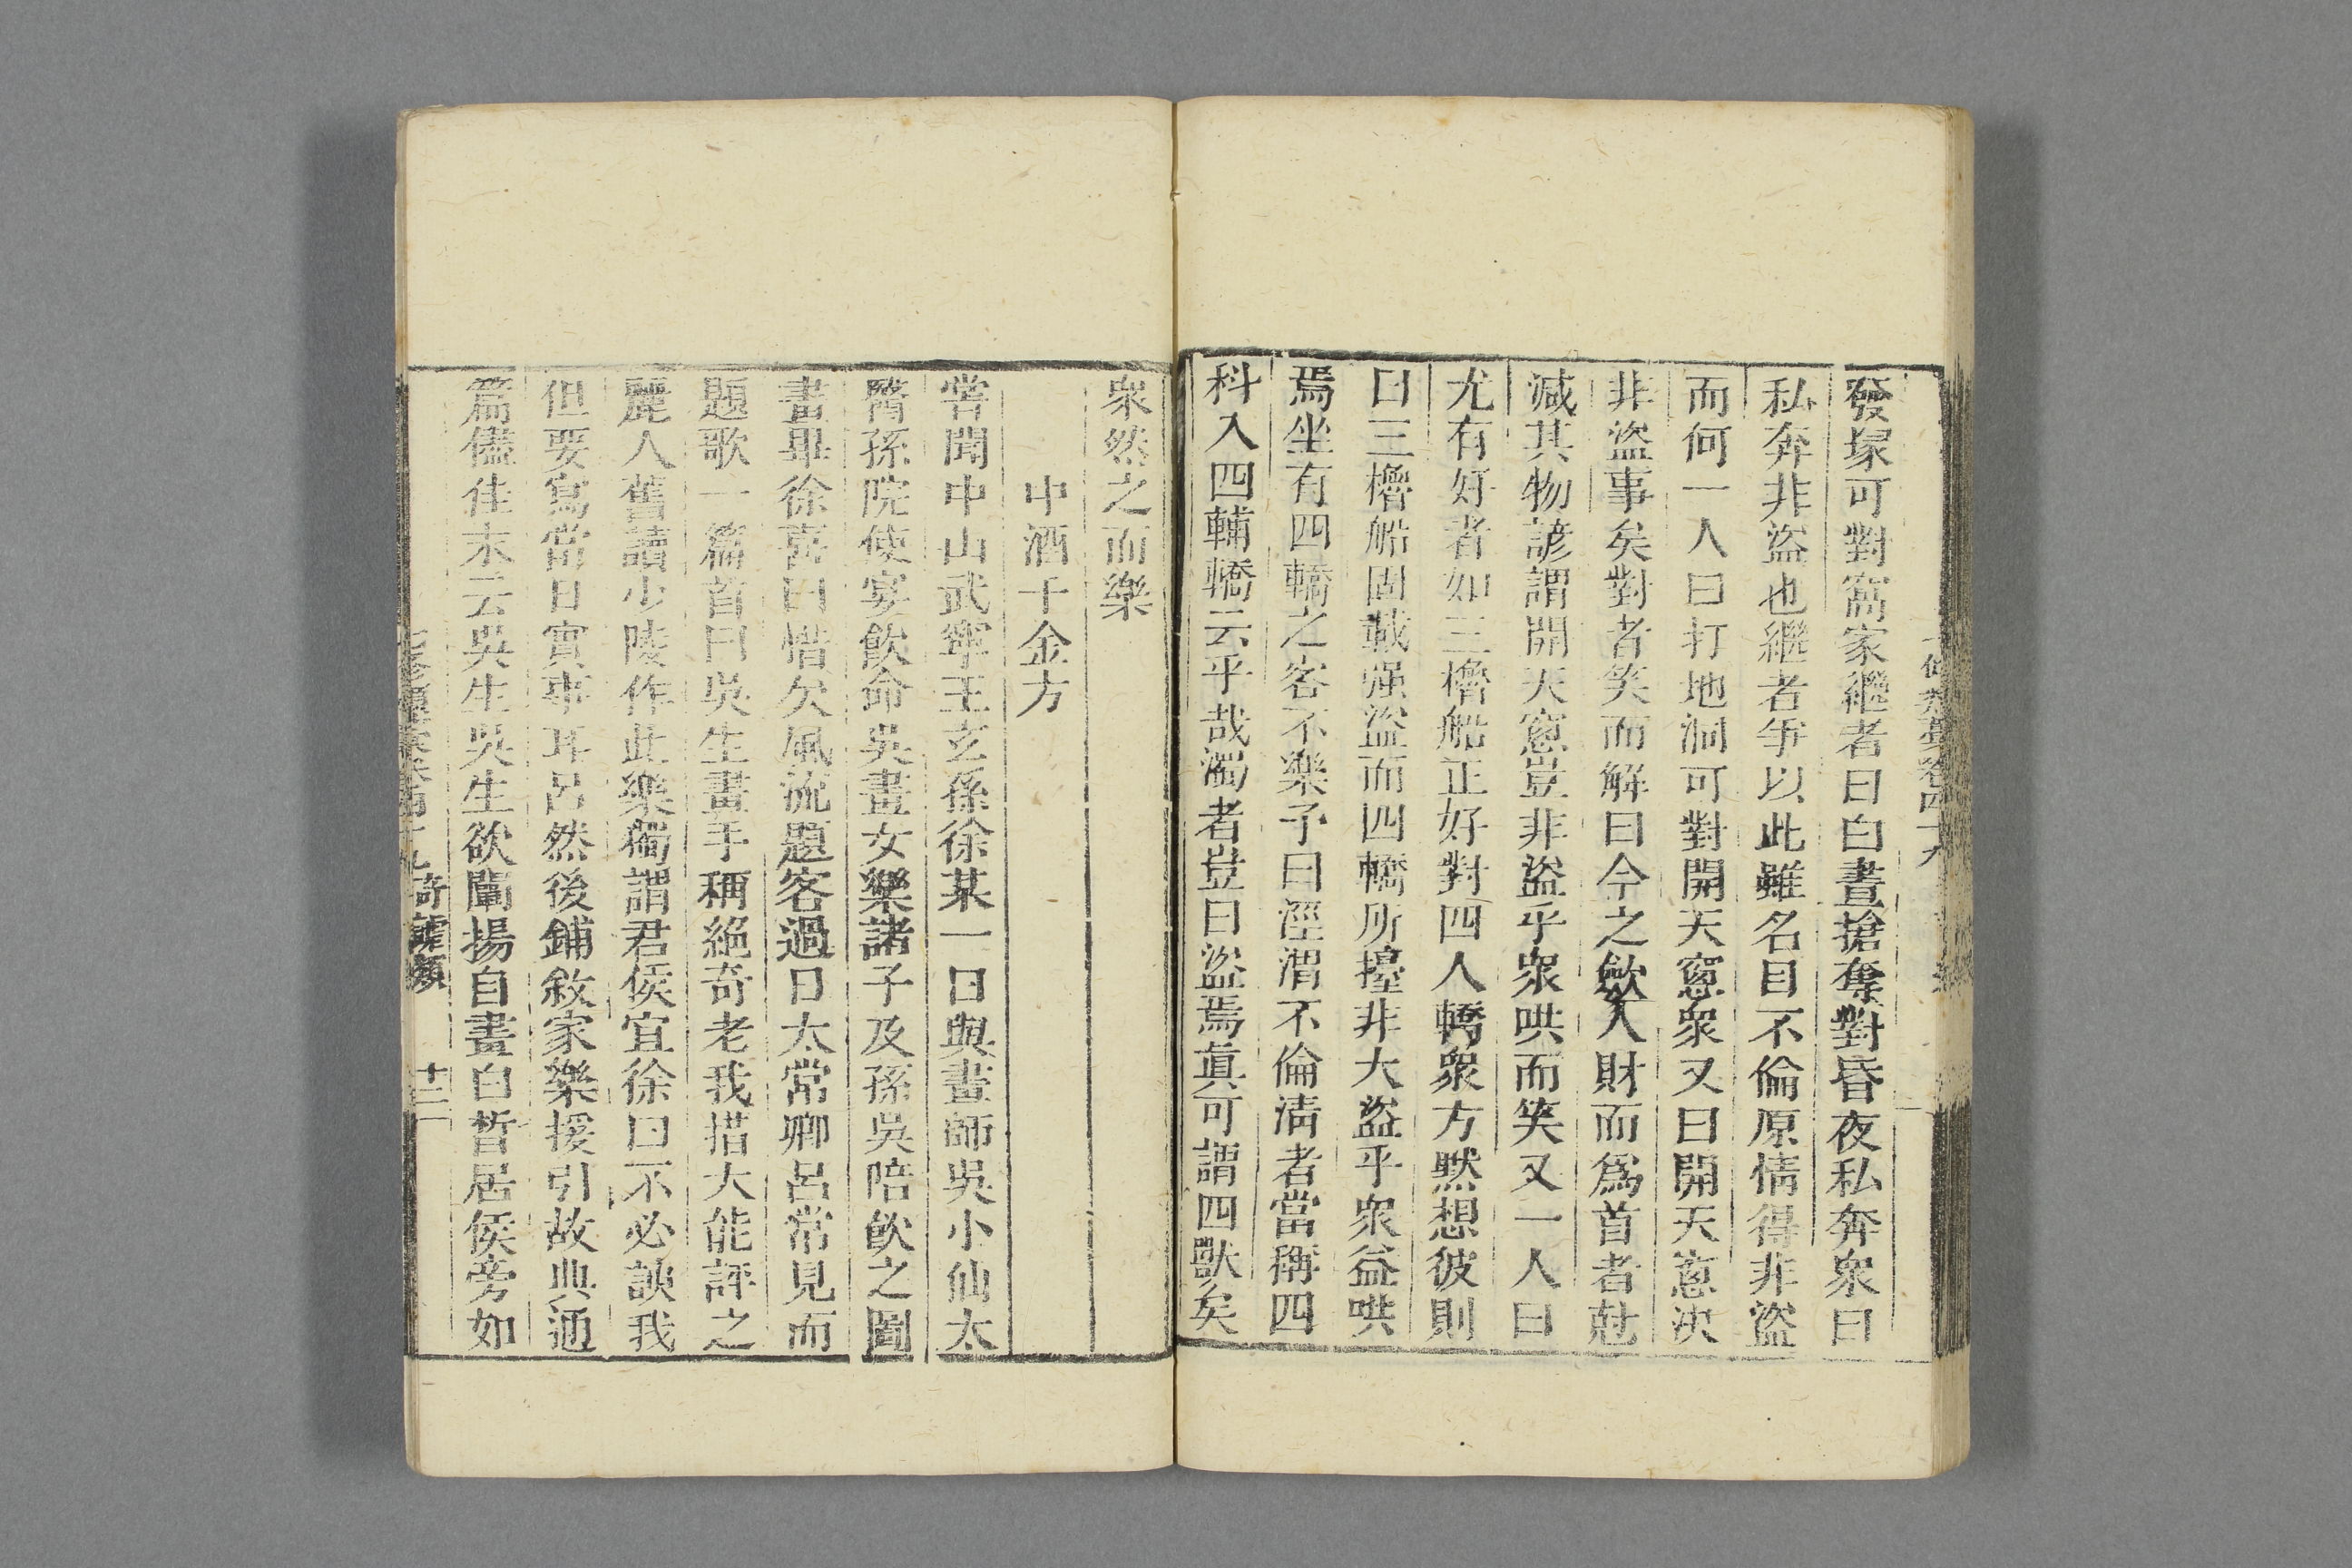 發塚可對窩家繼者曰白晝搶奪對昏夜私奔衆曰
私奔非盜也繼者爭以此雖名目不倫原情得非盜
而何一人曰打地洞可對開天窓衆又曰開天窓決
非盜事矣對者笑而解曰今之歛人財而爲首者尅
減其物諺謂開天窓豈非盜乎衆哄而笑又一人曰
尤有好者如三櫓船正好對四人轎衆方黙想彼則
曰三櫓船固載强盜而四轎所擡非大盜乎衆益哄
焉坐有四轎之客不樂予曰涇渭不倫淸者當稱四
科入四輔轎云乎哉濁者豈曰盜焉眞可謂四獸矣
衆然之而樂
中酒千金方
嘗聞中山武寧王玄孫徐某一日與畫師吳小仙太
醫孫院使宴飮命吳畫女樂諸子及孫吳陪飮之圖
畫畢徐喜曰惜欠風流題客過日太常卿呂常見而
題歌一篇首曰吳生畫手稱絕奇老我措大能評之
麗人舊讀少陵作此樂獨謂君侯宜徐曰不必談我
但要寫當日實事耳呂然後鋪敘家樂援引故典通
篇儘佳末云吳生吳生欲闡揚自畫白晳居侯旁如
奇謔類
十三